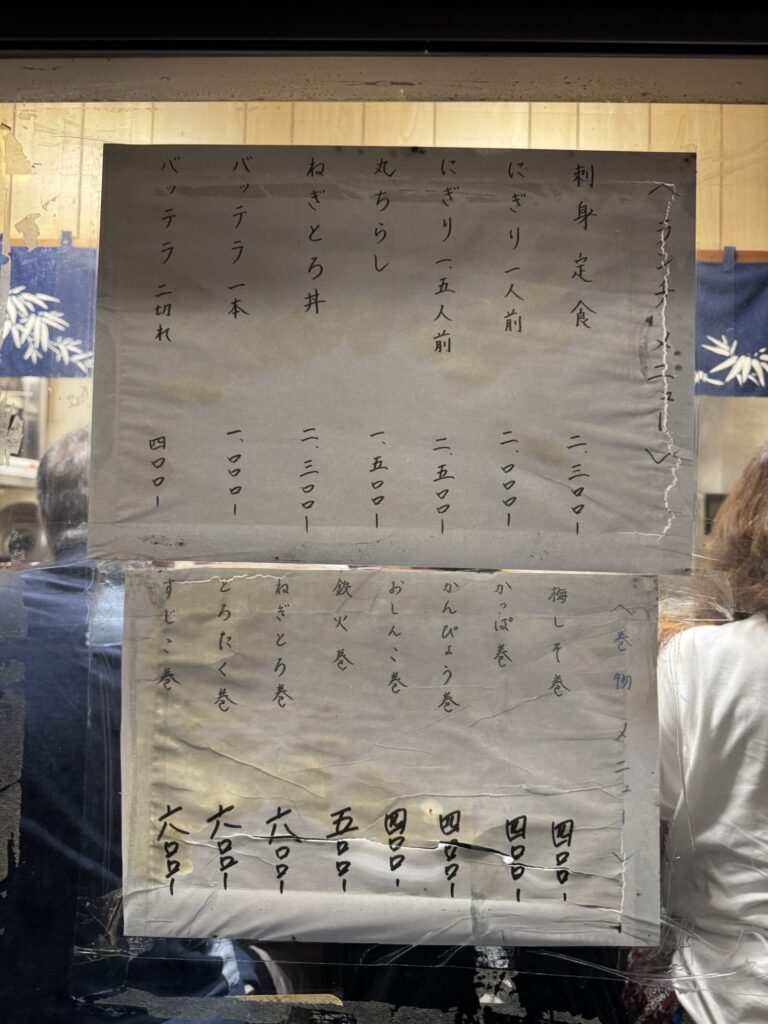 〈ランチメニュー〉
刺身定食 二、三〇〇ー
にぎり一人前 二、〇〇〇ー
にぎり一、五人前 二、五〇〇ー
丸ちらし 一、五〇〇ー
ねぎとろ丼 二、三〇〇ー
バッテラ一本 一、〇〇〇ー
バッテラ二切れ 四〇〇ー
〈巻物メニュー〉
梅しそ巻 四〇〇ー
かっぱ巻 四〇〇ー
かんぴょう巻 四〇〇ー
おしんこ巻 四〇〇ー
鉄火巻 五〇〇ー
ねぎとろ巻 六〇〇ー
とろたく巻 六〇〇ー
すじこ巻 六〇〇ー